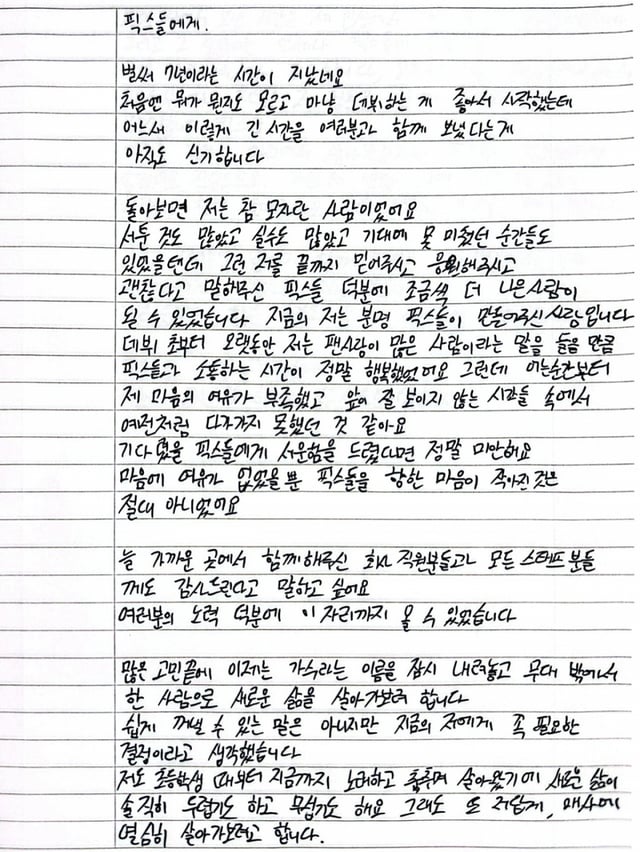 픽스들에게.
벌써 7년이라는 시간이 지났네요
처음엔 뭐가 뭔지도 모르고 마냥 데뷔하는 게 좋아서 시작했는데
어느새 이렇게 긴 시간을 여러분과 함께 보냈다는게
아직도 신기합니다
돌아보면 저는 참 모자란 사람이었어요
서툰 것도 많았고 실수도 많았고 기대에 못 미쳤던 순간들도
있었을텐데 그런 저를 끝까지 믿어주시고 응원해주시고
괜찮다고 말해주신 픽스들 덕분에 조금씩 더 나은사람이
될 수 있었습니다 지금의 저는 분명 픽스들이 만들어주신사람입니다
데뷔 초부터 오랫동안 저는 팬사랑이 많은 사람이라는 말을 들을 만큼
픽스들과 소통하는 시간이 정말 행복했었어요 그런데 어느순간부터
제 마음의 여유가 부족했고 앞이 잘 보이지 않는 시간들 속에서
예전처럼 다가가지 못했던 것 같아요
기다렸을 픽스들에게 서운함을 드렸다면 정말 미안해요
마음에 여유가 없었을 뿐 픽스들을 향한 마음이 작아진것은
절대 아니었어요
늘 가까운 곳에서 함께해주신 회사 직원분들과 모든 스태프분들
께도 감사드린다고 말하고 싶어요
여러분의 노력 덕분에 이 자리까지 올 수 있었습니다
많은 고민끝에 이제는 가수라는 이름을 잠시 내려놓고 무대 밖에서
한 사람으로 새로운 삶을 살아가보려 합니다
쉽게 꺼낼 수 있는 말은 아니지만 지금의 저에게 꼭 필요한
결정이라고 생각했습니다
저도 초등학생 때부터 지금까지 노래하고 춤추며 살아왔기에 새로운 삶이
솔직히 두렵기도 하고 무섭기도 해요 그래도 또 저답게, 매사에
열심히 살아가보려고 합니다.